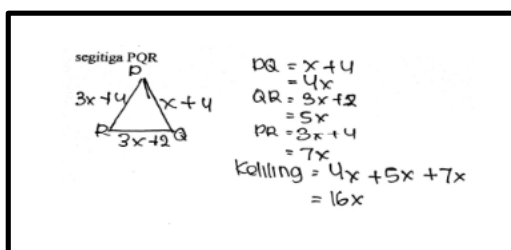 segitiga PQR
P
3x+4
x+4
R
Q
3x+2
PQ = x+4
= 4x
QR = 3x+2
= 5x
PR = 3x+4
= 7x
Keliling = 4x +5x +7x
= 16x